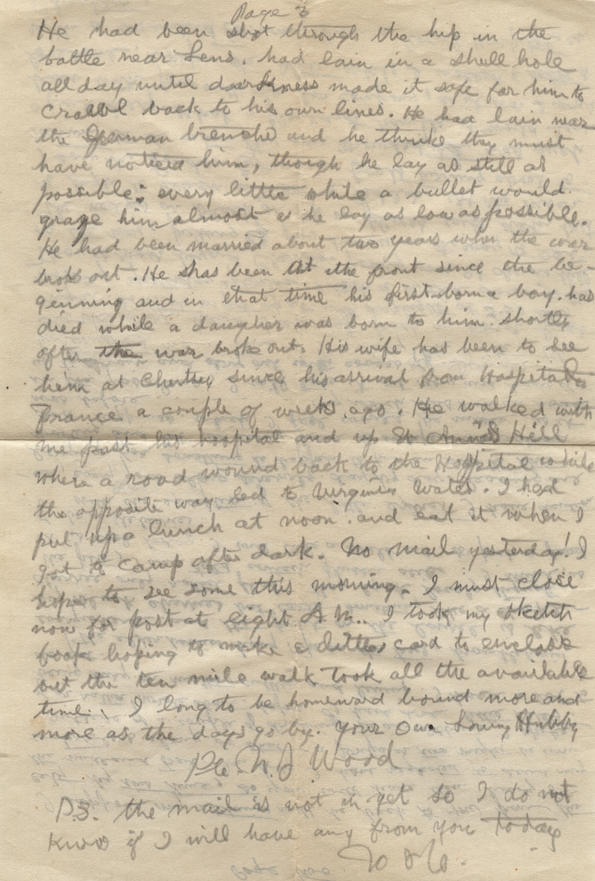 Page 3
He had been shot through the hip in the
battle near Lens. had lain in a shell hole
all day until darkness made it safe for him to
crawl back to his own lines. He had lain near
the German trenche and he thinks they must
have noticed him, though he lay as still as
possible: every little while a bullet would
graze him almost & he lay as low as possible.
He had been married about two years when the war
broke out. He has been at the front since the be-
ginning and in that time his first born a boy. has
died while a daughter was born to him shortly
after the war broke out. His wife has been to see
him at Chertsey since his arrival from Hospital in
France a couple of weeks ago. He walked with
me past his hospital and up St Anns Hill
where a road wound back to the Hospital while
the opposite way led to Virginia Water. I had
put up a lunch at noon and eat it when I
got to camp after dark. No mail yesterday! I
hope to see some this morning. I must close
now for post at eight A.M.. I took my sketch
book hoping to make a little card to enclose
but the ten mile walk took all the available
time. I long to be homeward bound more and
more as the days go by. Your Own Loving Hubby
Pte. N J Wood
P.S. the mail is not in yet so I do not
know if I will have any from you today